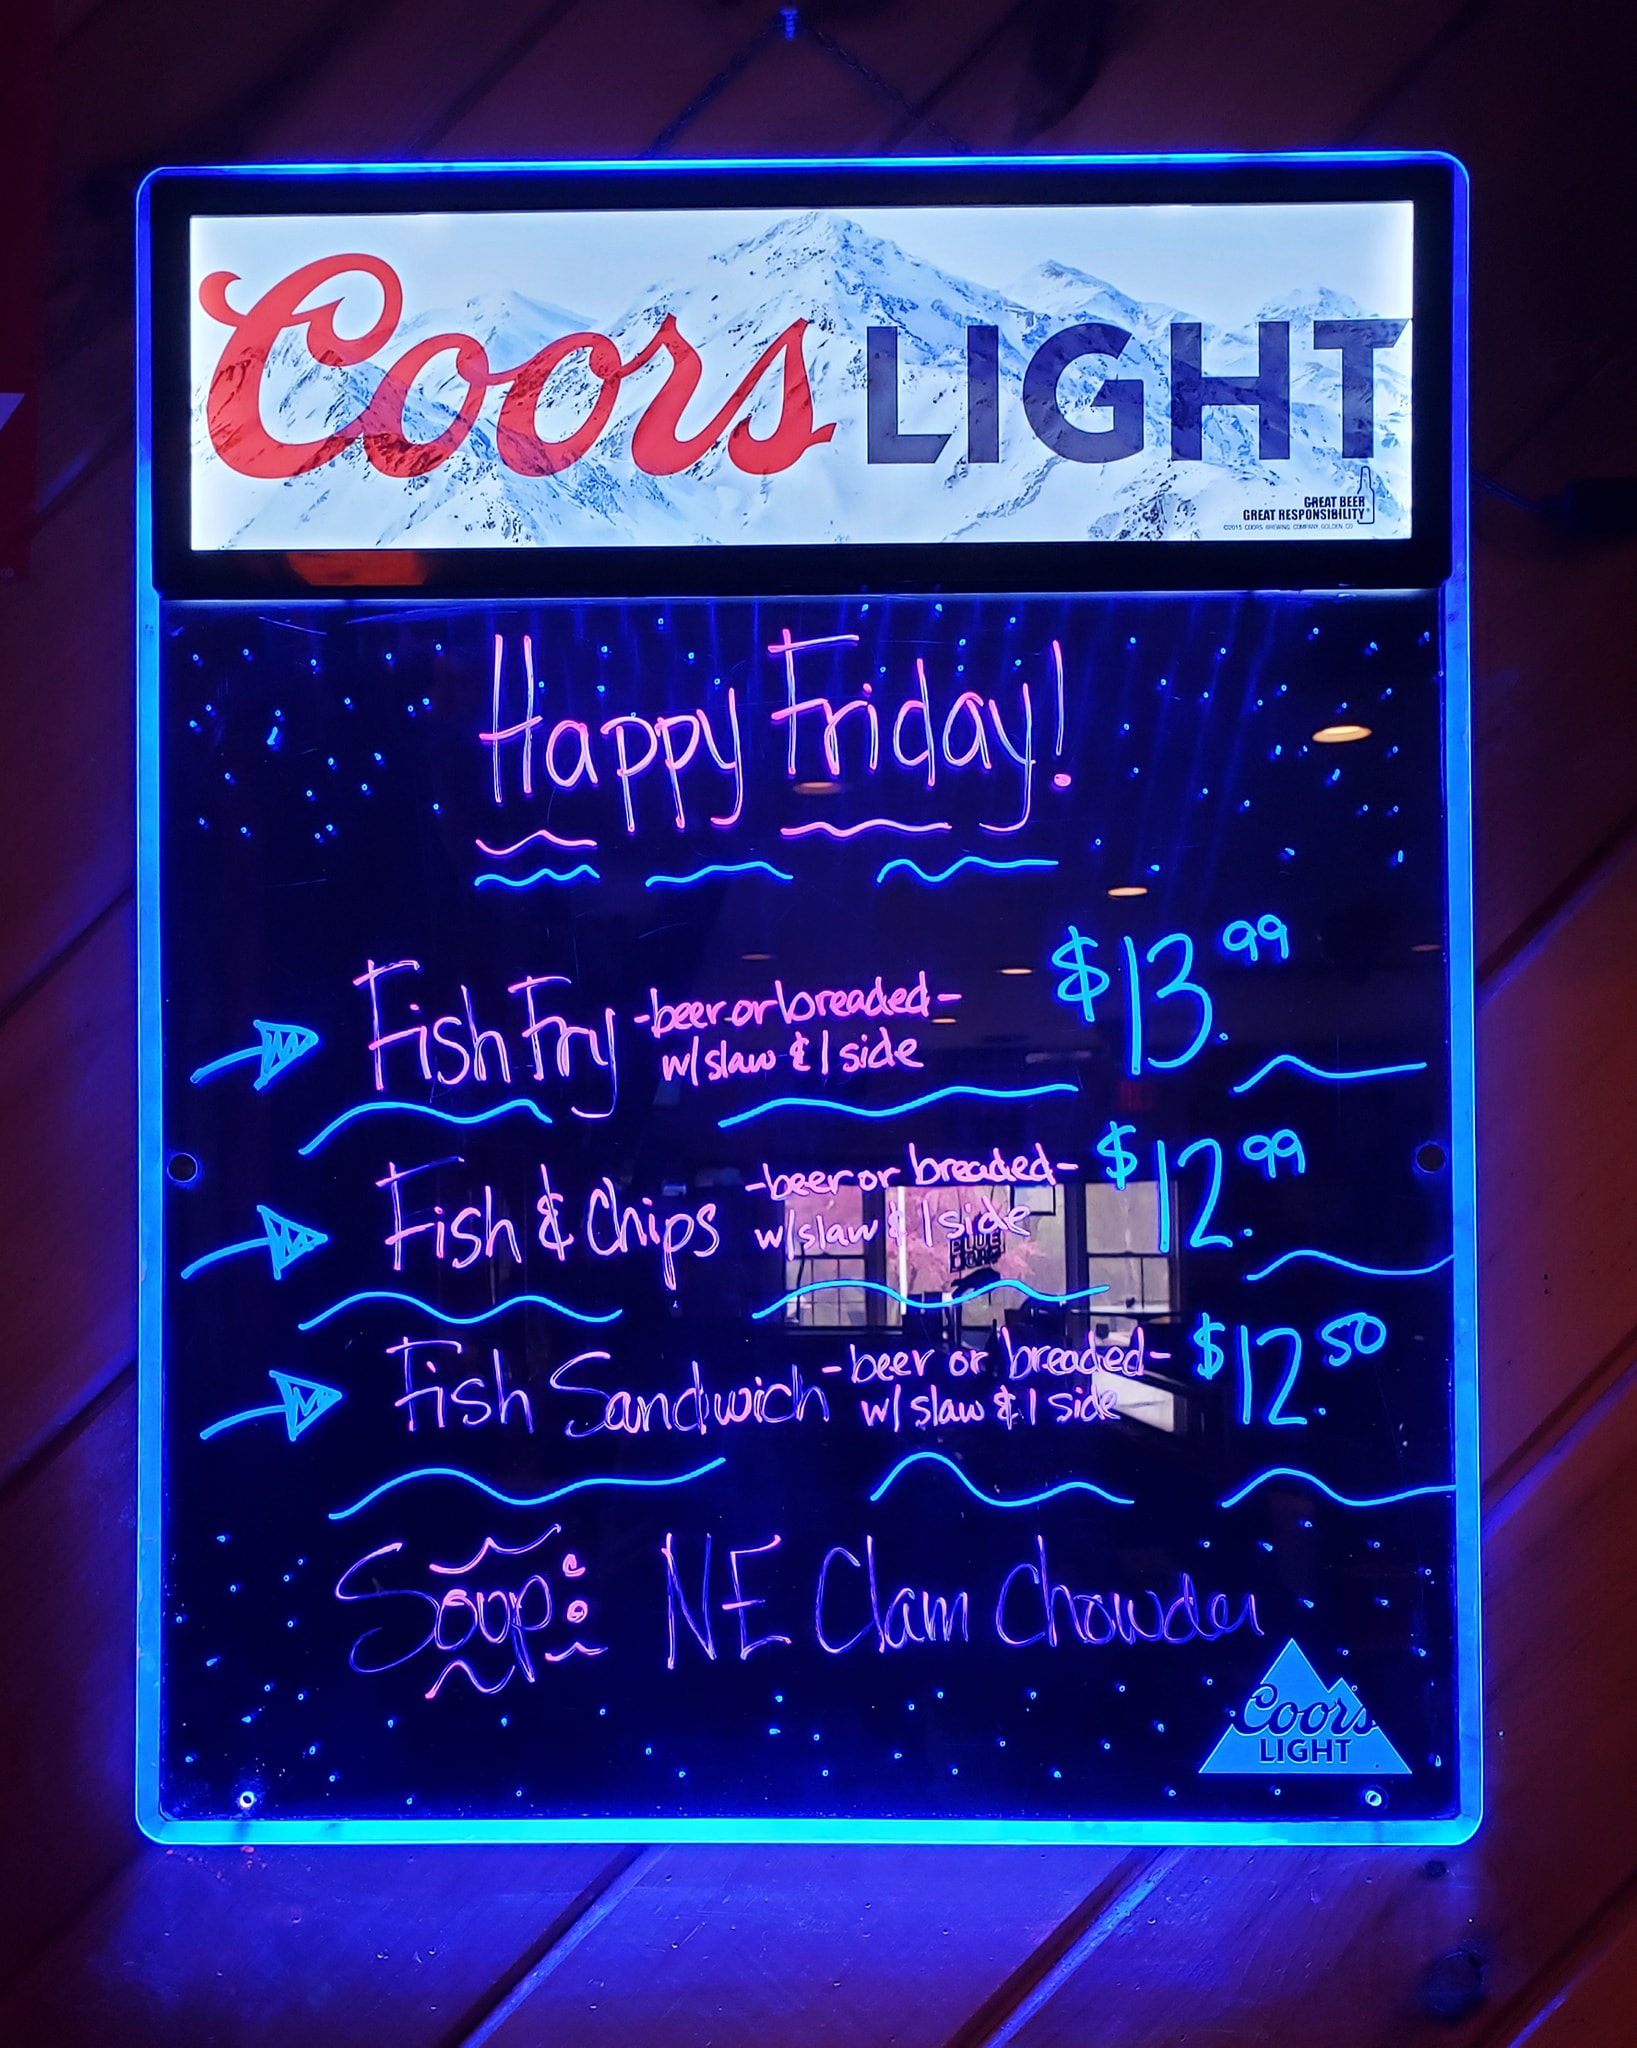 Coors LIGHT
GREAT BEER
GREAT RESPONSIBILITY
©2015 COORS BREWING COMPANY, GOLDEN, CO
Happy Friday!
Fish Fry -beer or breaded- $13.99
w/ slaw & 1 side
Fish & Chips -beer or breaded- $12.99
w/ slaw & 1 side
BLUE
MOON
Fish Sandwich -beer or breaded- $12.50
w/ slaw & 1 side
Soup: NE Clam Chowder
Coors
LIGHT